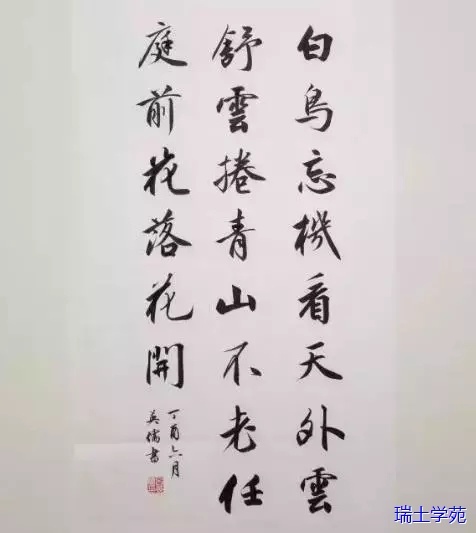 白鳥忘機看天外雲
舒雲捲青山不老任
庭前花落花開
丁酉六月
英儒書
瑞士学苑